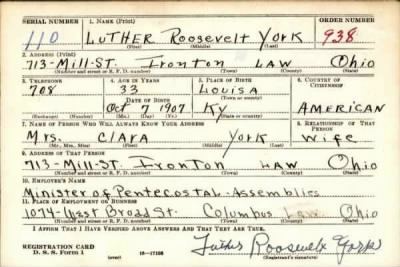 SERIAL NUMBER 1. NAME (Print) ORDER NUMBER
110 LUTHER Roosevelt York 938
(First) (Middle) (Last)
2. ADDRESS (Print)
713-Mill-St. Ironton LAW Ohio
(Number and street or R. F. D. number) (Town) (County) (State)
3. TELEPHONE 4. AGE IN YEARS 5. PLACE OF BIRTH 6. COUNTRY OF CITIZENSHIP
708 33 Louisa
(Town or county)
DATE OF BIRTH
Oct 7 1907 Ky AMERICAN
(Mo.) (Day) (Yr.) (State or country)
7. NAME OF PERSON WHO WILL ALWAYS KNOW YOUR ADDRESS 8. RELATIONSHIP OF THAT PERSON
Mrs. Clara York Wife
(Mr., Mrs., Miss) (First) (Middle) (Last)
9. ADDRESS OF THAT PERSON
713-Mill-St. Ironton LAW Ohio
(Number and street or R. F. D. number) (Town) (County) (State)
10. EMPLOYER'S NAME
Minister of Pentecostal-Assemblies
11. PLACE OF EMPLOYMENT OR BUSINESS
1074-West Broad St. Columbus Ohio
(Number and street or R. F. D. number) (Town) (County) (State)
I AFFIRM THAT I HAVE VERIFIED ABOVE ANSWERS AND THAT THEY ARE TRUE.
REGISTRATION CARD
D. S. S. Form 1 (over) 16-17105 Luther Roosevelt York
(Registrant's signature)